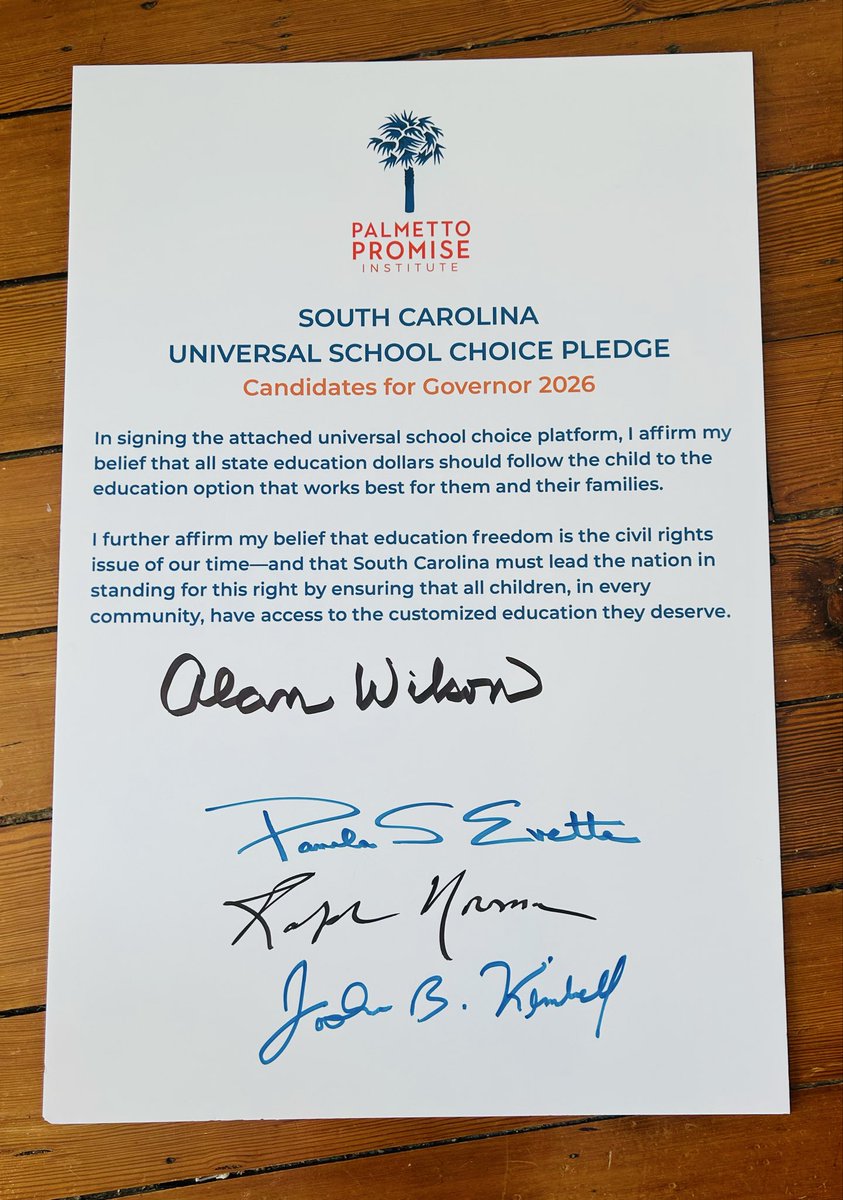 PALMETTO
PROMISE
INSTITUTE
SOUTH CAROLINA
UNIVERSAL SCHOOL CHOICE PLEDGE
Candidates for Governor 2026
In signing the attached universal school choice platform, I affirm my
belief that all state education dollars should follow the child to the
education option that works best for them and their families.
I further affirm my belief that education freedom is the civil rights
issue of our time—and that South Carolina must lead the nation in
standing for this right by ensuring that all children, in every
community, have access to the customized education they deserve.
Alan Wilson
Pamela S Evette
Ralph Norman
Josh B. Kimbell